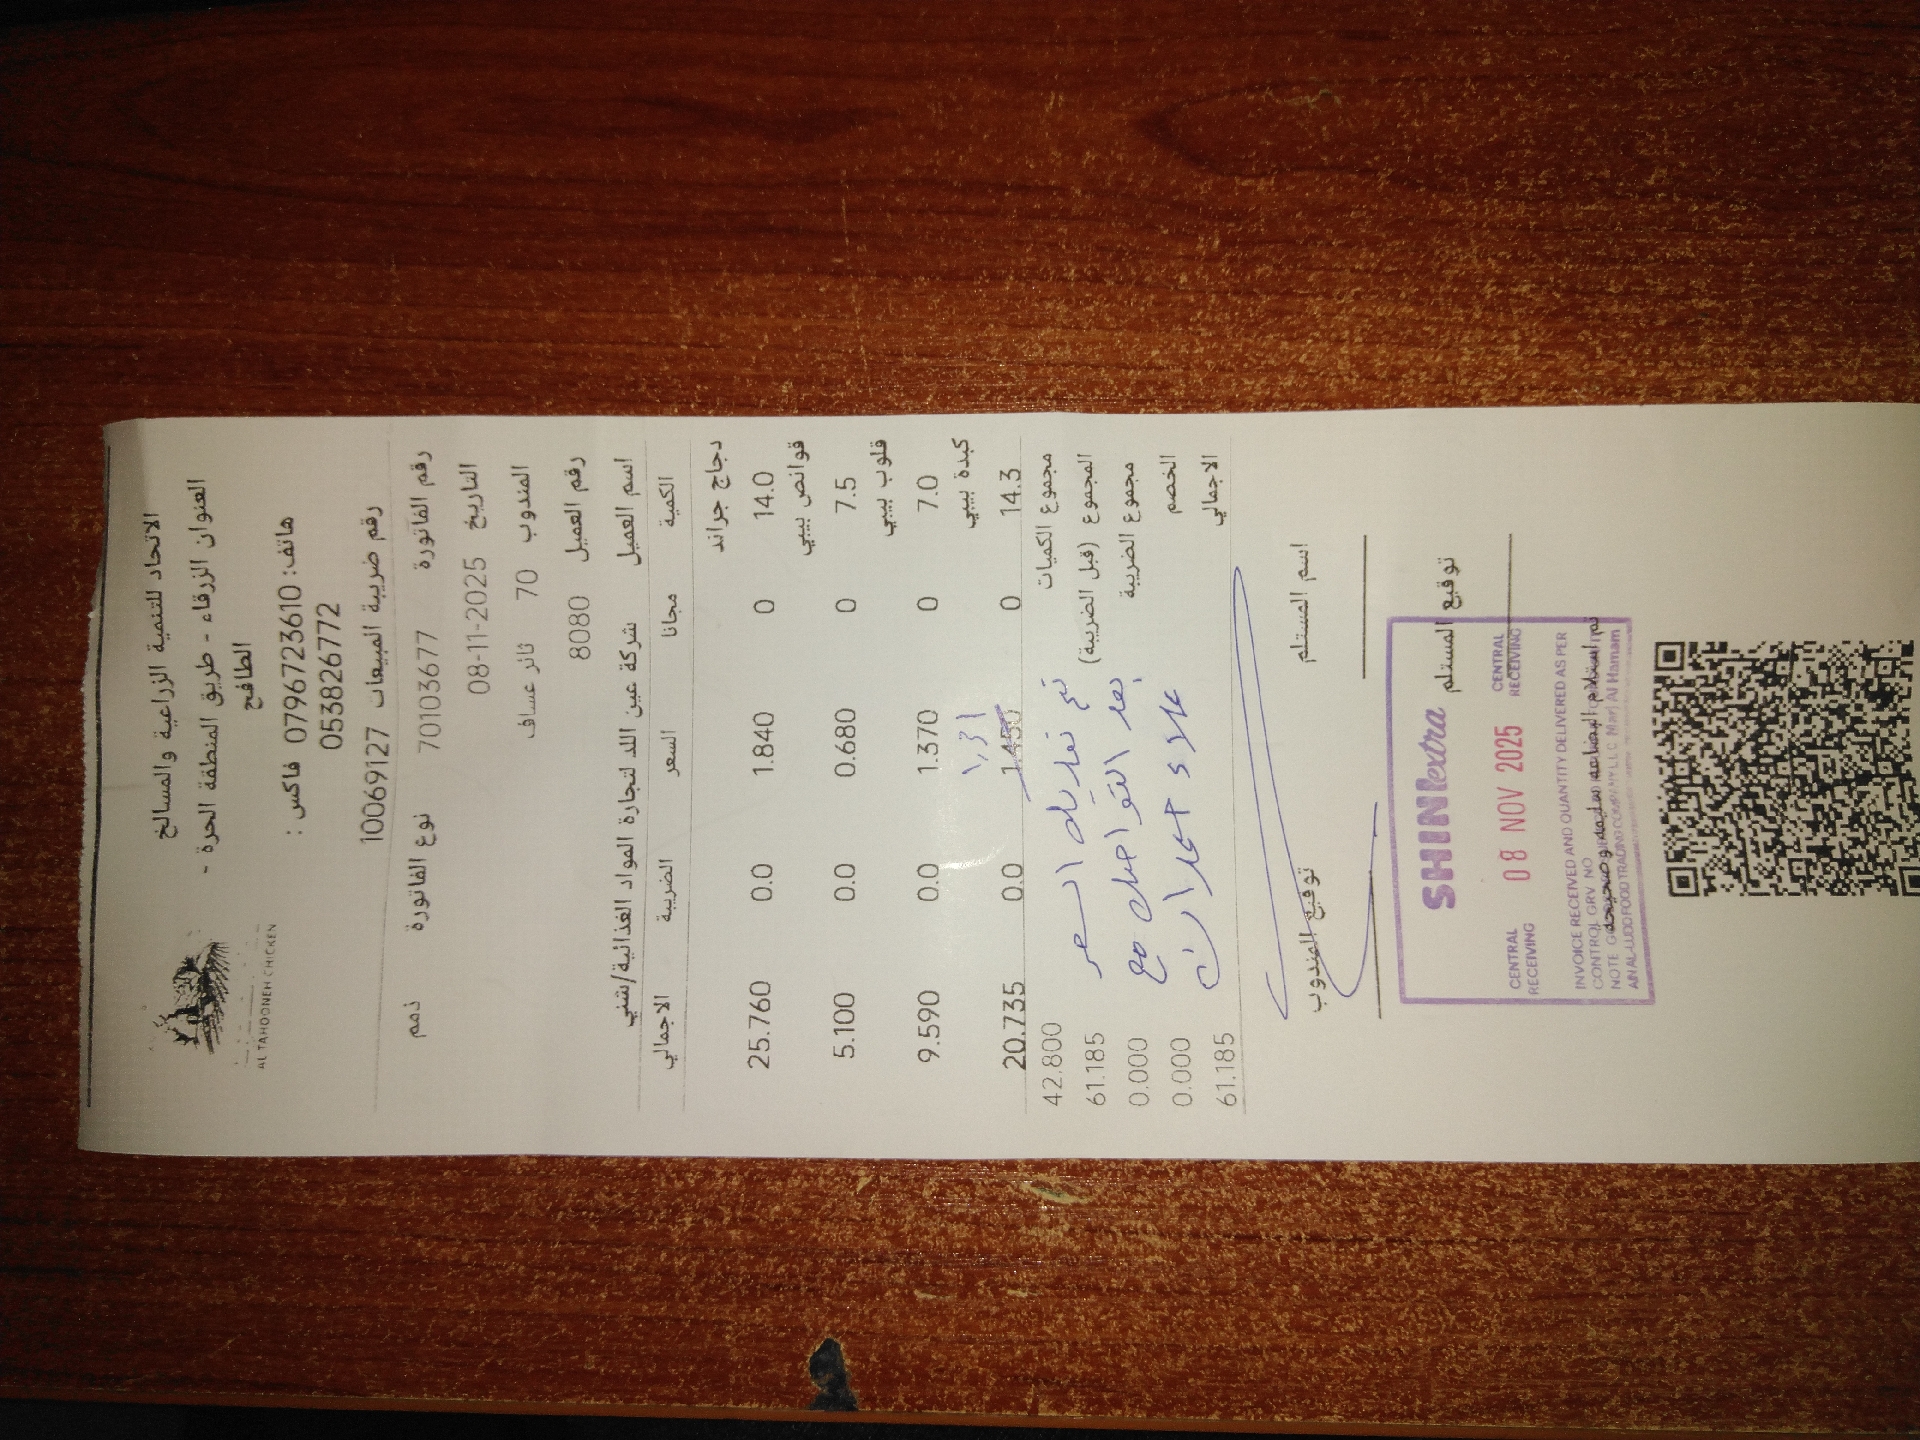 AL TAHOONEH CHICKEN
الاتحاد للتنمية الزراعية والمسالخ
العنوان الزرقاء - طريق المنطقة الحرة -
الطافح
هاتف: 0796723610 فاكس :
053826772
رقم ضريبة المبيعات 10069127
رقم الفاتورة 70103677 نوع الفاتورة ذمم
التاريخ 08-11-2025
المندوب 70 ثائر عساف
رقم العميل 8080
اسم العميل شركة عين اللد لتجارة المواد الغذائية/شني
الكمية مجانا السعر الضريبة الاجمالي
دجاج جراند
14.0 0 1.840 0.0 25.760
قوانص بيبي
7.5 0 0.680 0.0 5.100
قلوب بيبي
7.0 0 1.370 0.0 9.590
كبدة بيبي
١,٣١
14.3 0 1.450 0.0 20.735
مجموع الكميات 42.800
المجموع (قبل الضريبة) 61.185
مجموع الضريبة 0.000
الخصم 0.000
الاجمالي 61.185
تم تعديل السعر
بعد التواصل مع
علاء
اسم المستلم
توقيع المندوب
توقيع المستلم
SHINIextra
CENTRAL RECEIVING 08 NOV 2025 CENTRAL RECEIVING
INVOICE RECEIVED AND QUANTITY DELIVERED AS PER
CONTROL GRV NO
NOTE
تم استلام البضاعه سليمه و صحيحه
AN AL-LUDD FOOD TRADING COMPANY L.L.C Marj Al Hamam